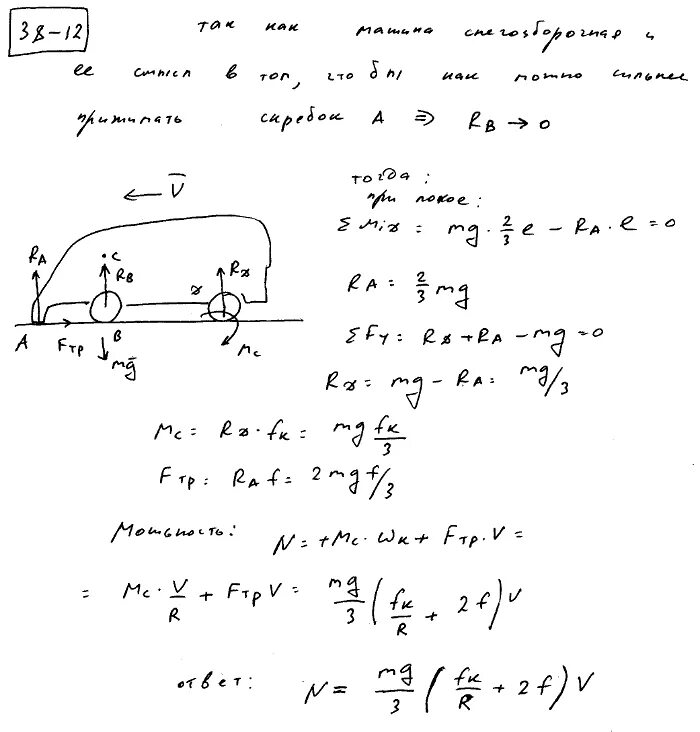 38-12
так как машина снегозборочная и
ее смысл в том, что бы как можно сильнее
прижимать скребок A ⇒ R_B → 0
V̅
R_A
C
R_B
R_D
D
A
F_тр
B
mg̅
M_c
тогда:
при покое:
ΣM_iD = mg · 2/3 ℓ − R_A · ℓ = 0
R_A = 2/3 mg
ΣF_y = R_D + R_A − mg = 0
R_D = mg − R_A = mg/3
M_c = R_D · f_к = mg f_к/3
F_тр = R_A f = 2mg f/3
Мощность: N = +M_c · ω_к + F_тр · V =
= M_c · V/R + F_тр V = mg/3 (f_к/R + 2f) V
ответ: N = mg/3 (f_к/R + 2f) V